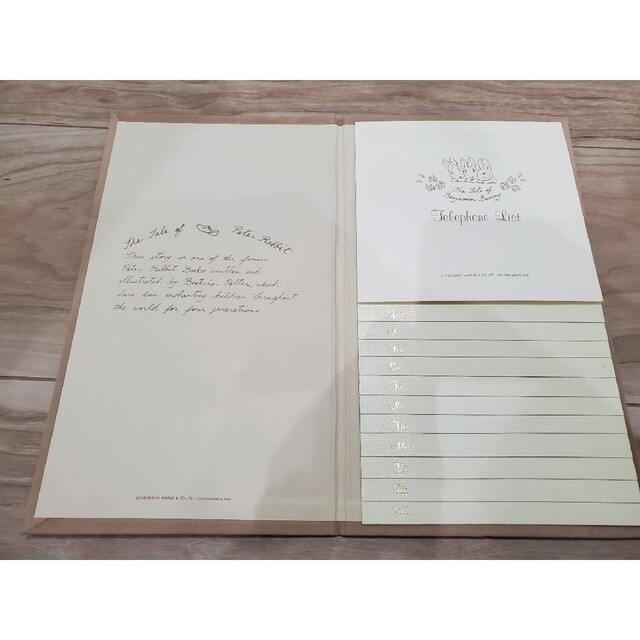 The Tale of Peter Rabbit
This story is one of the famous
Peter Rabbit Books written and
illustrated by Beatrix Potter, which
have been enchanting children throughout
the world for four generations.
©FREDERICK WARNE & CO.LTD. LONDON
The Tale of
Benjamin Bunny
Telephone List
©FREDERICK WARNE & CO.LTD. LONDON
Special
A
Ka
Sa
Ta
Na
Ha
Ma
Ya